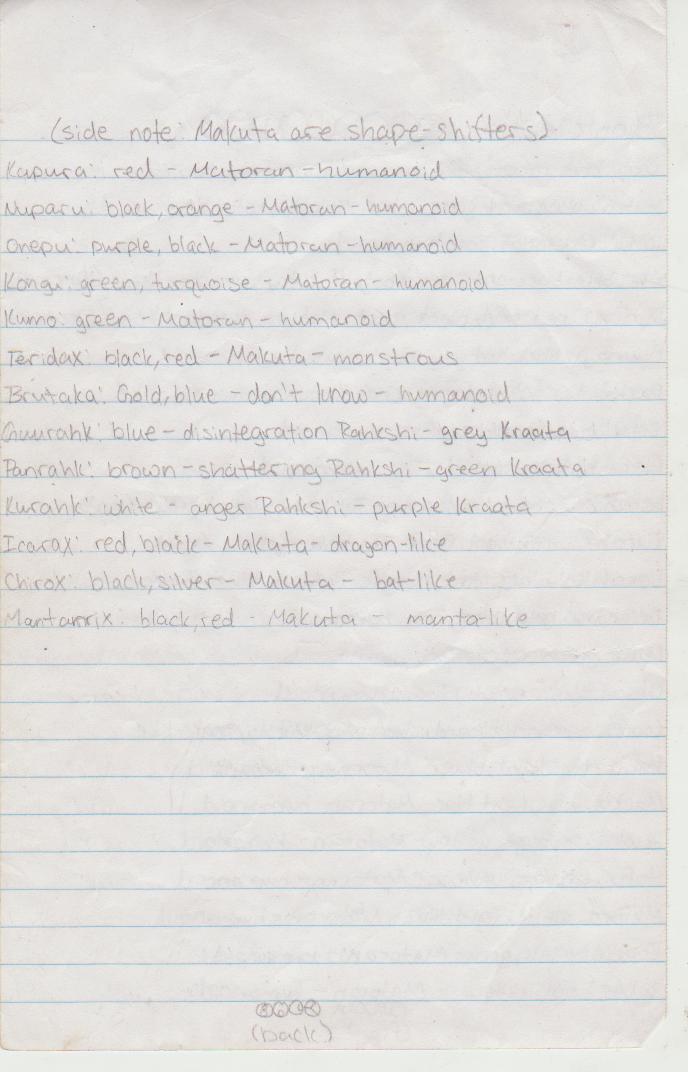 (side note: Makuta are shape-shifters)
Kapura: red - Matoran - humanoid
Nuparu: black, orange - Matoran - humanoid
Onepu: purple, black - Matoran - humanoid
Kongu: green, turquoise - Matoran - humanoid
Kumo: green - Matoran - humanoid
Teridax: black, red - Makuta - monstrous
Brutaka: Gold, blue - don't know - humanoid
Guurahk: blue - disintegration Rahkshi - grey Kraata
Panrahk: brown - shattering Rahkshi - green Kraata
Kurahk: white - anger Rahkshi - purple Kraata
Icarax: red, black - Makuta - dragon-like
Chirox: black, silver - Makuta - bat-like
Mantarrix: black, red - Makuta - manta-like
(back)